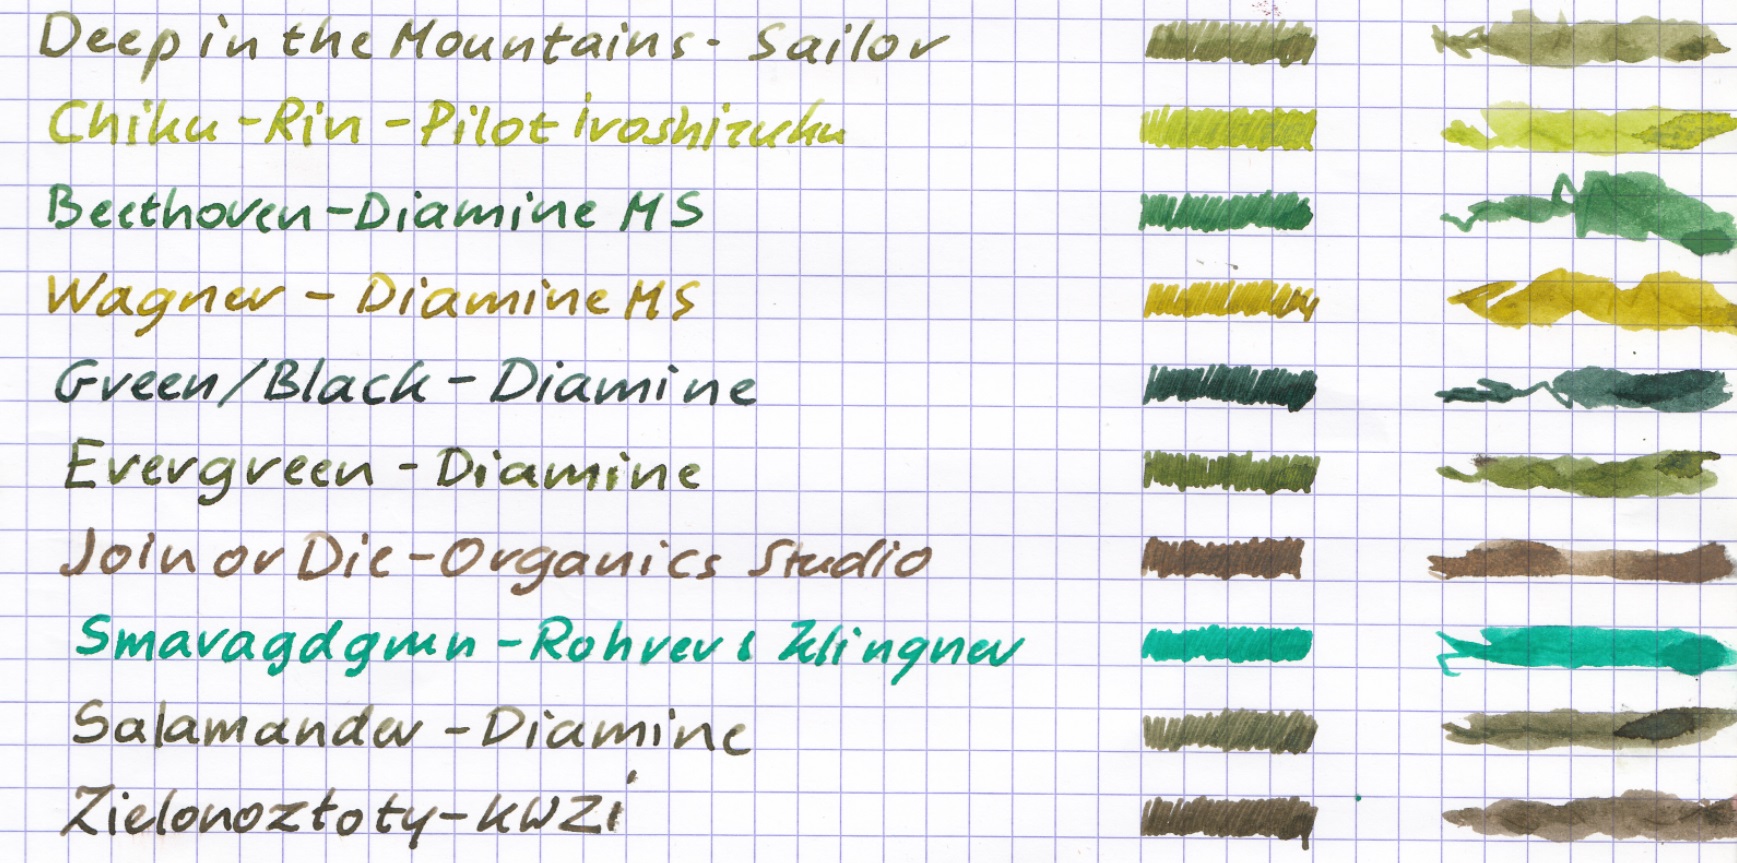 Deep in the Mountains - Sailor
Chiku-Rin - Pilot iroshizuku
Beethoven - Diamine MS
Wagner - Diamine MS
Green/Black - Diamine
Evergreen - Diamine
Join or Die - Organics Studio
Smaragdgrün - Rohrer & Klingner
Salamander - Diamine
Zielonozłoty - KWZI